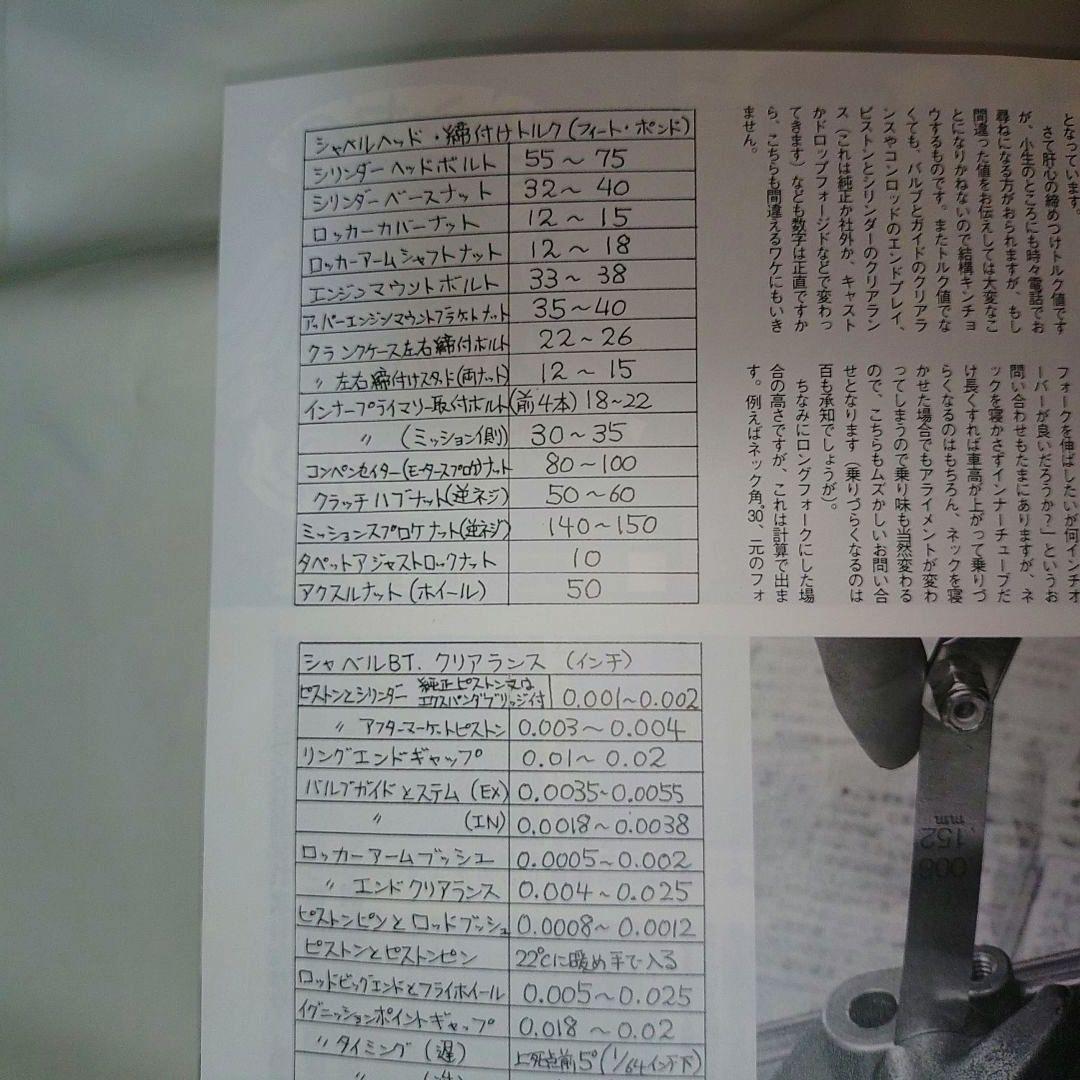 となっています。
さて肝心の締めつけトルク値です
が、小生のところにも時々電話でお
尋ねになる方がおられますが、もし
間違った値をお伝えしては大変なこ
とになりかねないので結構キンチョ
ウするものです。またトルク値でな
くても、バルブとガイドのクリアラ
ンスやコンロッドのエンドプレイ、
ピストンとシリンダーのクリアラン
ス(これは純正か社外か、キャスト
かドロップフォージドなどで変わっ
てきます)なども数字は正直ですか
ら、こちらも間違えるワケにもいき
ません。
フォークを伸ばしたいが何インチオ
ーバーが良いだろうか?」というお
問い合わせもたまにありますが、ネ
ックを寝かさずインナーチューブだ
け長くすれば車高が上がって乗りづ
らくなるのはもちろん、ネックを寝
かせた場合でもアライメントが変わ
ってしまうので乗り味も当然変わる
ので、こちらもムズかしいお問い合
せとなります(乗りづらくなるのは
百も承知でしょうが)。
ちなみにロングフォークにした場
合の高さですが、これは計算で出ま
す。例えばネック角30°、元のフォ
シャベルヘッド・締付けトルク(フィート・ポンド)
シリンダーヘッドボルト 55〜75
シリンダーベースナット 32〜40
ロッカーカバーナット 12〜15
ロッカーアームシャフトナット 12〜18
エンジンマウントボルト 33〜38
アッパーエンジンマウントブラケットナット 35〜40
クランクケース左右締付ボルト 22〜26
〃 左右締付けスタッド(両ナット) 12〜15
インナープライマリー取付ボルト(前4本) 18〜22
〃 (ミッション側) 30〜35
コンペンセイター(モータースプロケ)ナット 80〜100
クラッチハブナット(逆ネジ) 50〜60
ミッションスプロケナット(逆ネジ) 140〜150
タペットアジャストロックナット 10
アクスルナット(ホイール) 50
シャベルBT. クリアランス (インチ)
ピストンとシリンダー 純正ピストン又はエクスパンダブリッジ付 0.001〜0.002
〃 アフターマーケットピストン 0.003〜0.004
リングエンドギャップ 0.01〜0.02
バルブガイドとステム (EX) 0.0035〜0.0055
〃 (IN) 0.0018〜0.0038
ロッカーアームブッシュ 0.0005〜0.002
〃 エンドクリアランス 0.004〜0.025
ピストンピンとロッドブッシュ 0.0008〜0.0012
ピストンとピストンピン 22℃に暖め手で入る
ロッドビッグエンドとフライホイール 0.005〜0.025
イグニッションポイントギャップ 0.018〜0.02
〃 タイミング (遅) 上死点前5°(1/64インチ下)
.152
mm
006